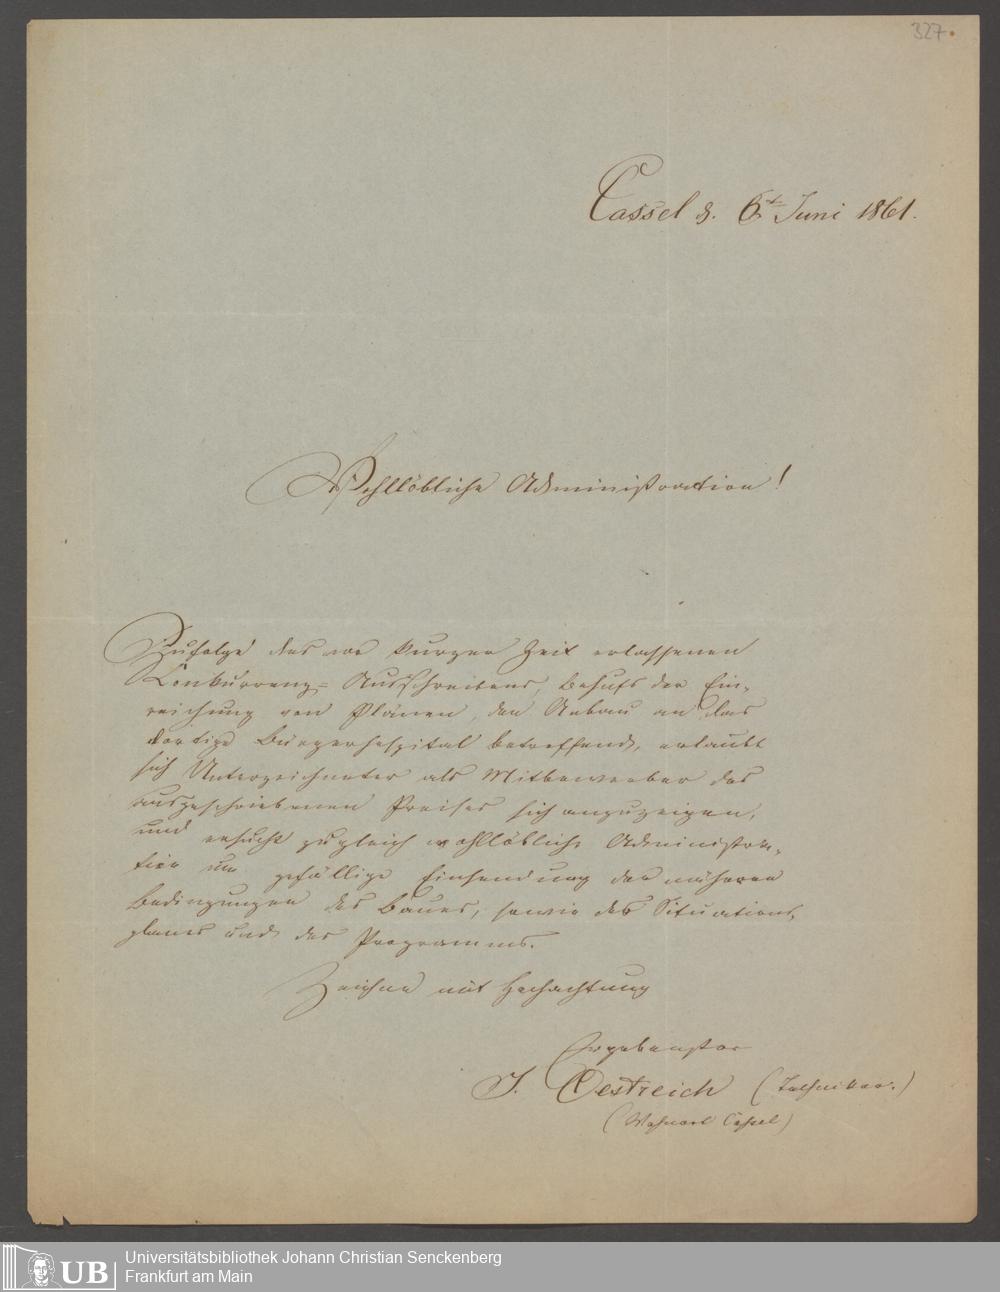 327.
Cassel d. 6t. Juni 1861.
Wohllöbliche Administration!
Zufolge des vor kurzer Zeit erlassenen
Konkurrenz- Ausschreibens, behufs der Ein-
reichung von Plänen, den Anbau an das
dortige Bürgerhospital betreffend, erlaubt
sich Unterzeichneter als Mitbewerber des
ausgeschriebenen Preises sich anzuzeigen,
und ersucht zugleich wohllöbliche Administra-
tion um gefällige Einsendung der näheren
Bedingungen des Baues, sowie des Situations-
planes und des Programms.
Zeichne mit Hochachtung
Ergebenster
J. Oestreich (Techniker.)
(Wohnort Cassel)
UB
Universitätsbibliothek Johann Christian Senckenberg
Frankfurt am Main